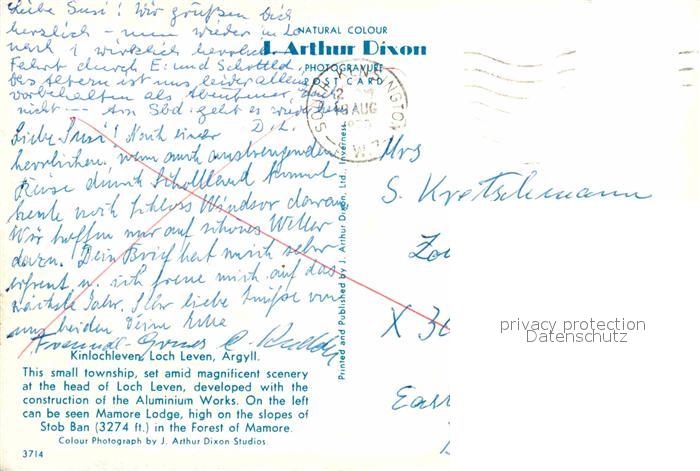 Liebe Susi! Wir grüßen Dich
herzlich – nun wieder in Lo
nach 1 wirklich herrlich
Fahrt durch E. und Schottld.
ist uns leider allen
vorbehalten als Abenteuer, auch
nicht – – Am Sbd. geht es wieder
D. L.
Liebe Susi! Nach einer
herrlichen, wenn auch anstrengenden
Reise durch Schottland kommt
heute noch Schloss Windsor daran
Wir hoffen nur auf schönes Wetter
dazu. Dein Brief hat mich sehr
erfreut u. ich freue mich auf das
nächste Jahr. Sehr liebe Grüße von
uns beiden Deine
NATURAL COLOUR
J. Arthur Dixon
PHOTOGRAVURE
POST CARD
SOUTH KENSINGTON
AUG
Printed and Published by J. Arthur Dixon, Ltd., Inverness.
Mrs
S. Kretschmann
X
Kinlochleven, Loch Leven, Argyll.
This small township, set amid magnificent scenery
at the head of Loch Leven, developed with the
construction of the Aluminium Works. On the left
can be seen Mamore Lodge, high on the slopes of
Stob Ban (3274 ft.) in the Forest of Mamore.
Colour Photograph by J. Arthur Dixon Studios.
3714
privacy protection
Datenschutz